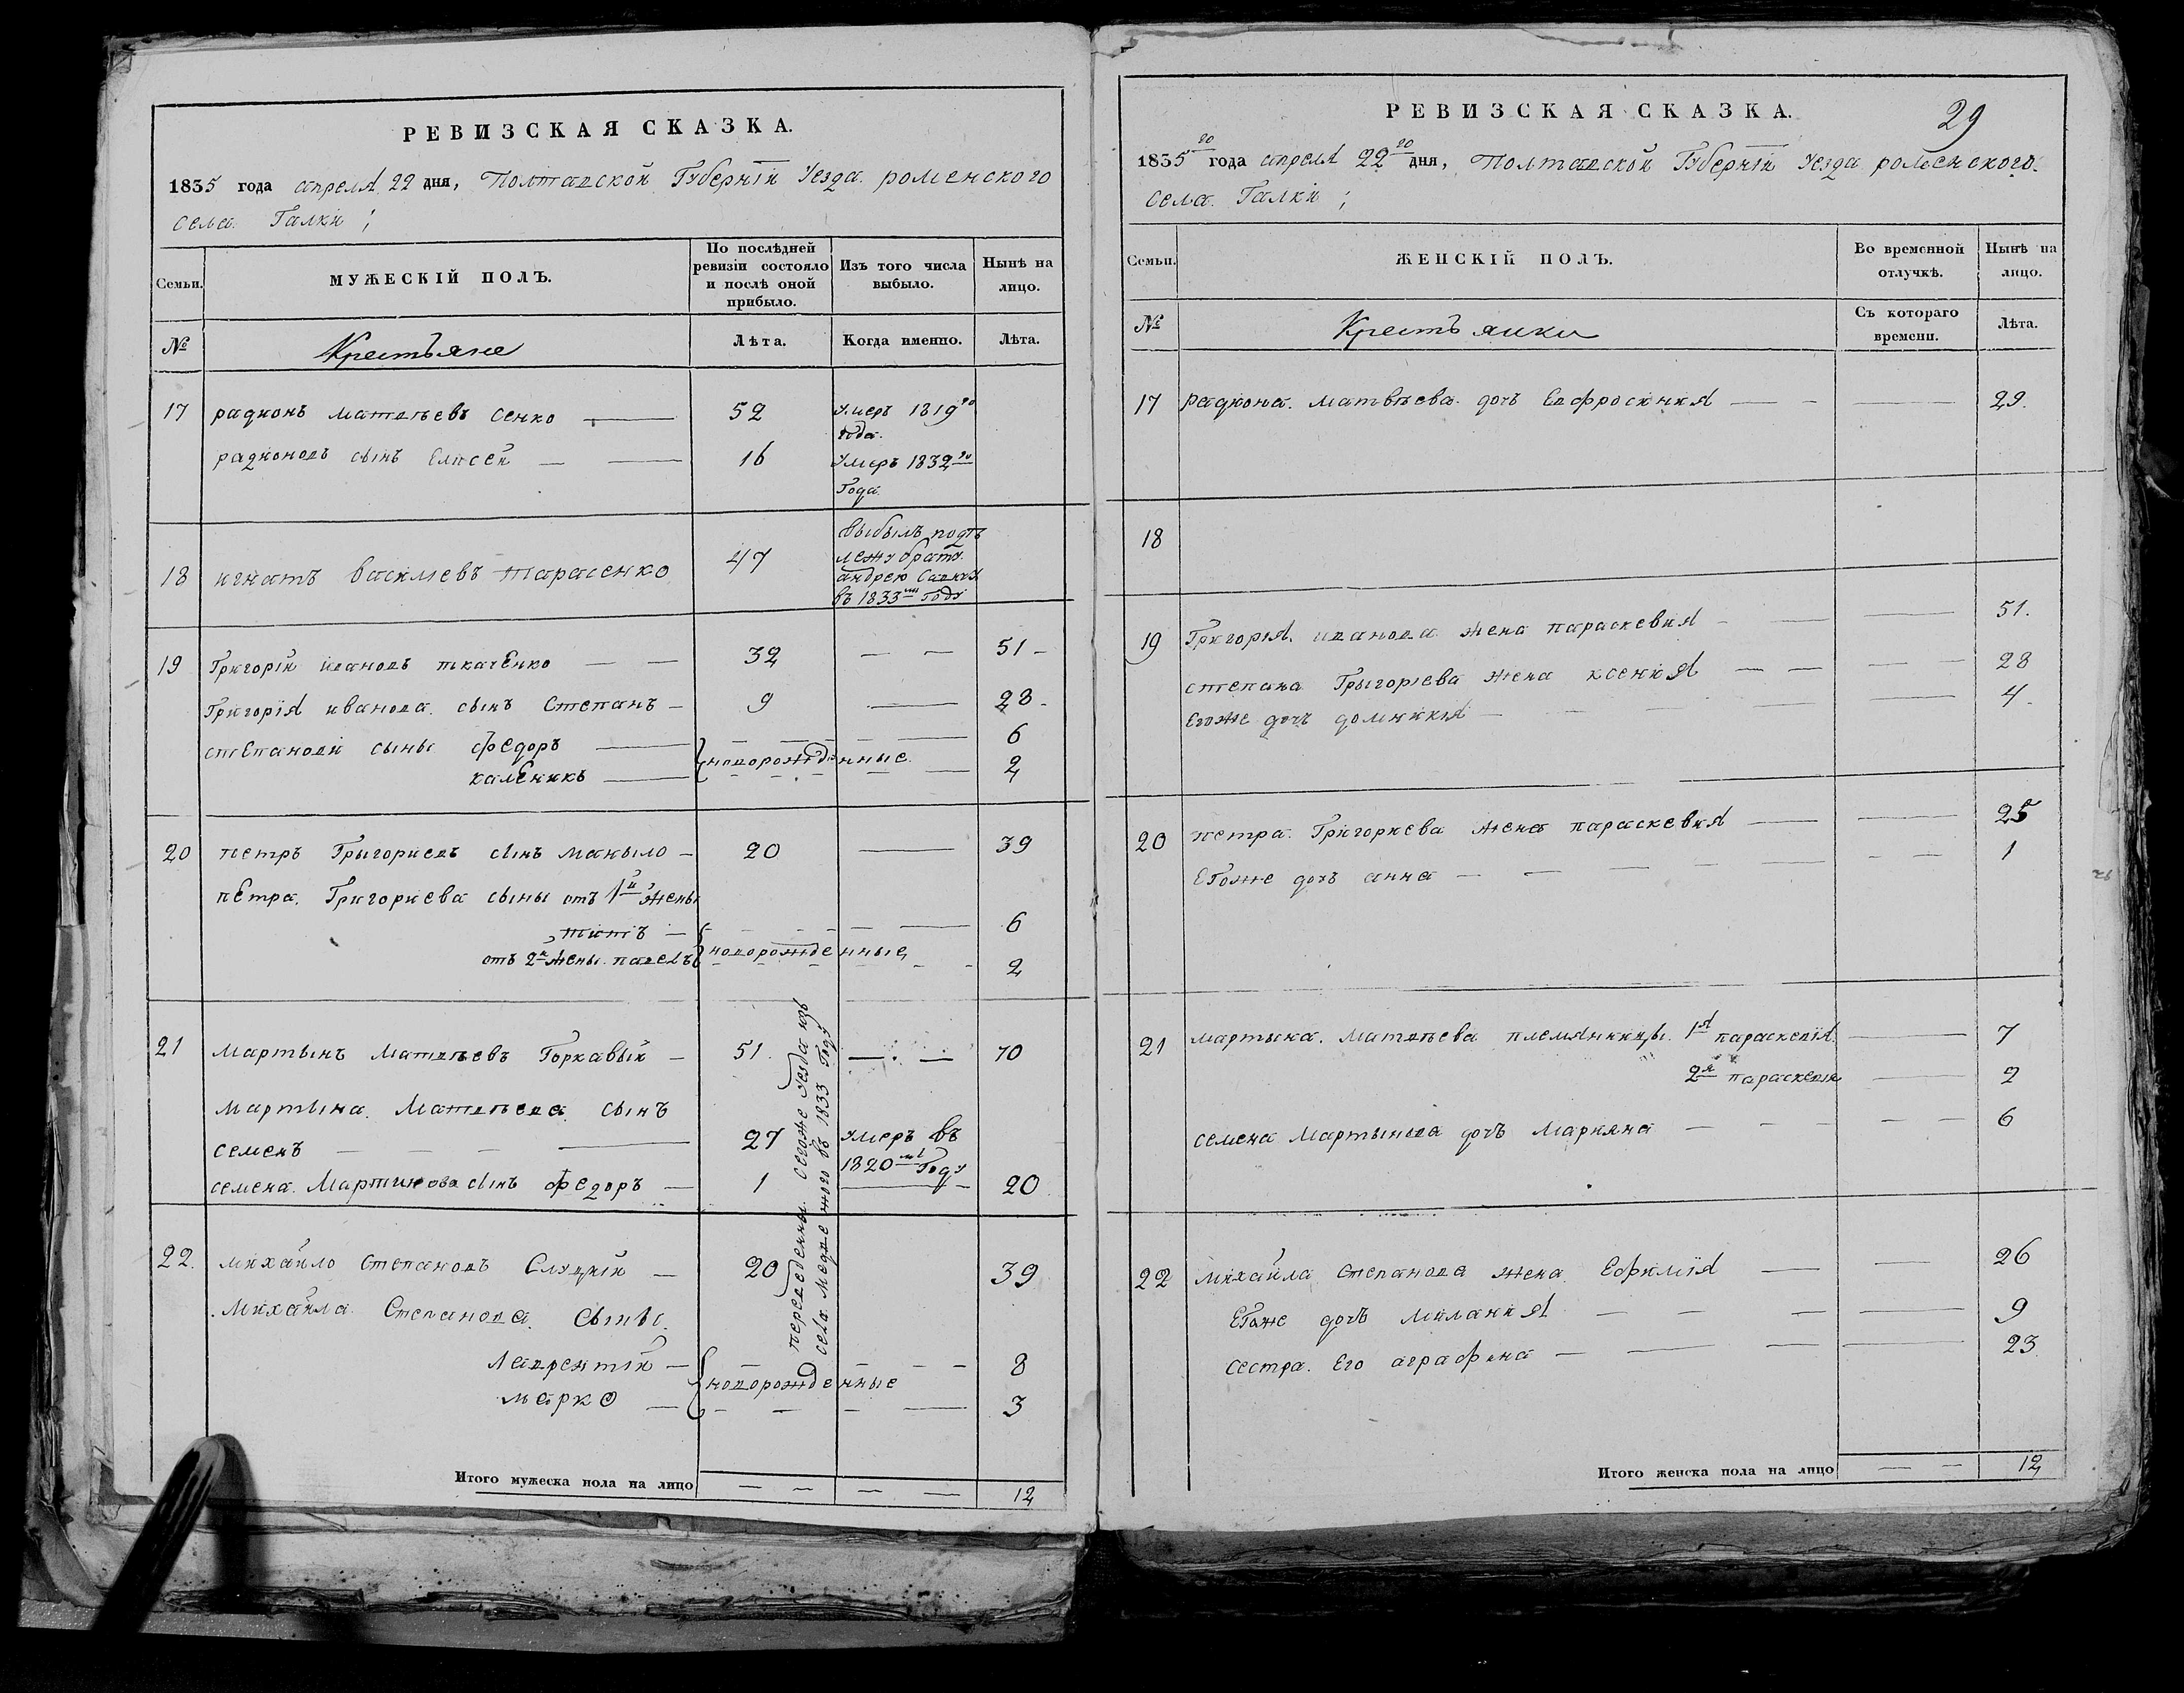 РЕВИЗСКАЯ СКАЗКА.
1835 года апреля 22 дня, Полтавской Губерніи Уезда роменского
села Галки ;
Семьи.
МУЖЕСКІЙ ПОЛЪ.
По послѣдней ревизіи состояло и послѣ оной прибыло.
Изъ того числа выбыло.
Нынѣ на лицо.
№
Крестьяне
Лѣта.
Когда именно.
Лѣта.
17 радионъ матвѣевъ Сенко — 52 умеръ 1819го года.
радионовъ сынъ Елисей — — 16 умеръ 1832го Года
18 игнатъ василиевъ тарасенко 47 выбылъ
брату
андрею
въ 1833мъ году
19 Григорій ивановъ ткаченко — — 32 — — 51 -
Григорія иванова сынъ Степанъ — 9 — 28 -
степановы сыны федоръ — 6
каленикъ — новорожденные 2
20 петръ Григориевъ сынъ маныло — 20 — 39
петра Григориева сыны отъ 1й жены
титъ — 6
отъ 2й жены павелъ новорожденные 2
21 мартынъ Матвѣевъ Горкавый — 51 — — 70
мартина Матвѣева сынъ
семенъ — — — — 27 умеръ въ
1820мъ Году
семена Мартинова сынъ федоръ — 1 — 20
22. михайло Степановъ Слуцкій — 20 39
михайла Степанова сыны
лаврентій — 8
марко — новорожденные 3
переведенны сегоже уезда изъ
села въ 1833 Году
Итого мужеска пола на лицо — — — — 12
РЕВИЗСКАЯ СКАЗКА.
29
1835го года апреля 22го дня, Полтавской Губерніи Уезда роменского
села Галки ;
Семьи.
ЖЕНСКІЙ ПОЛЪ.
Во временной отлучкѣ.
Нынѣ на лицо.
№
Крестьянки
Съ котораго времени.
Лѣта.
17 радиона матвѣева дочь Евфросиния — - — 29.
18
19 Григорія иванова жена параскевия - — — 51.
степана Григориева жена ксения — — — — 28
егоже дочь домникия — — — — — 4
20 петра Григориева жена параскевия — — 25
егоже дочь анна — — — — — — 1
21 мартына Матвѣева племянницы 1я параскевія — 7
2я параскевия — 2
семена Мартынова дочь Марияна — — — — — 6
22 михайла степанова жена Ефимія — — 26
егоже дочь милания — — — — 9
сестра его аграфена — — — — 23
Итого женска пола на лицо — — 12